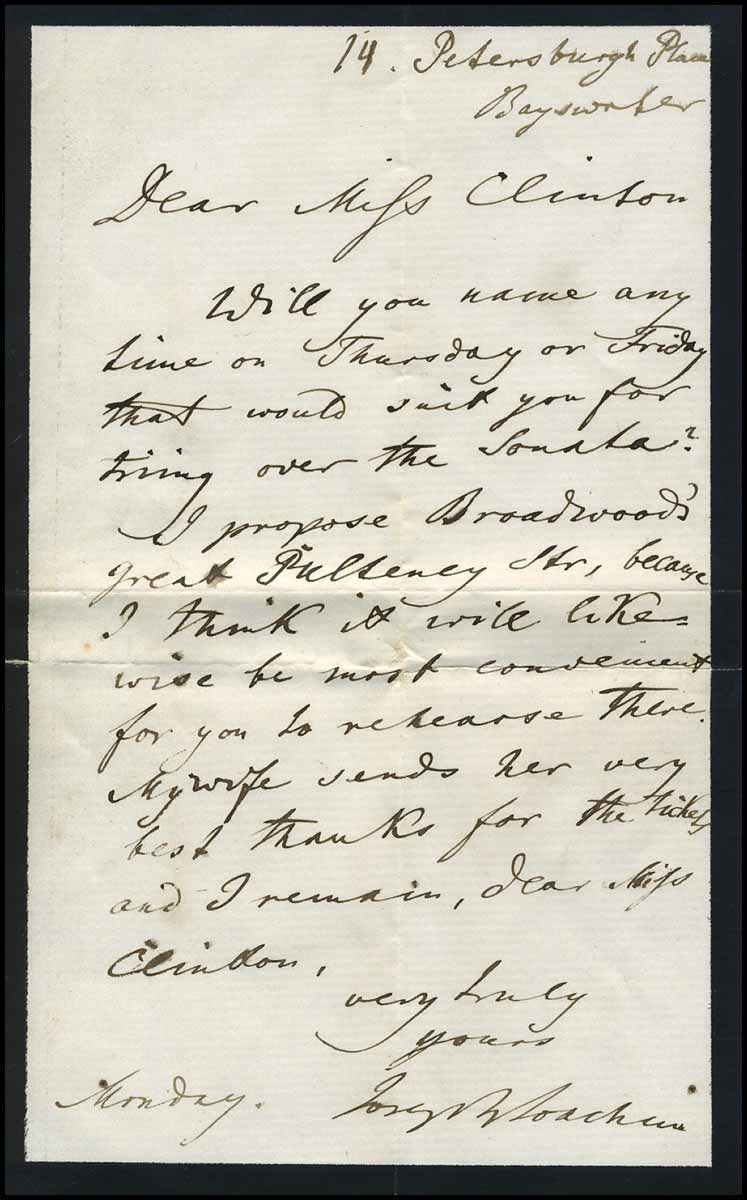 14. Petersburgh Place
Bayswater
Dear Miss Clinton
Will you name any
time on Thursday or Friday
that would suit you for
triing over the Sonata?
I propose Broadwood's
great Pulteney Str, because
I think it will like=
wise be most convenient
for you to rehearse there.
My wife sends her very
best thanks for the tickets
and I remain, dear Miss
Clinton,
very truly
yours
Monday. Joseph Joachim